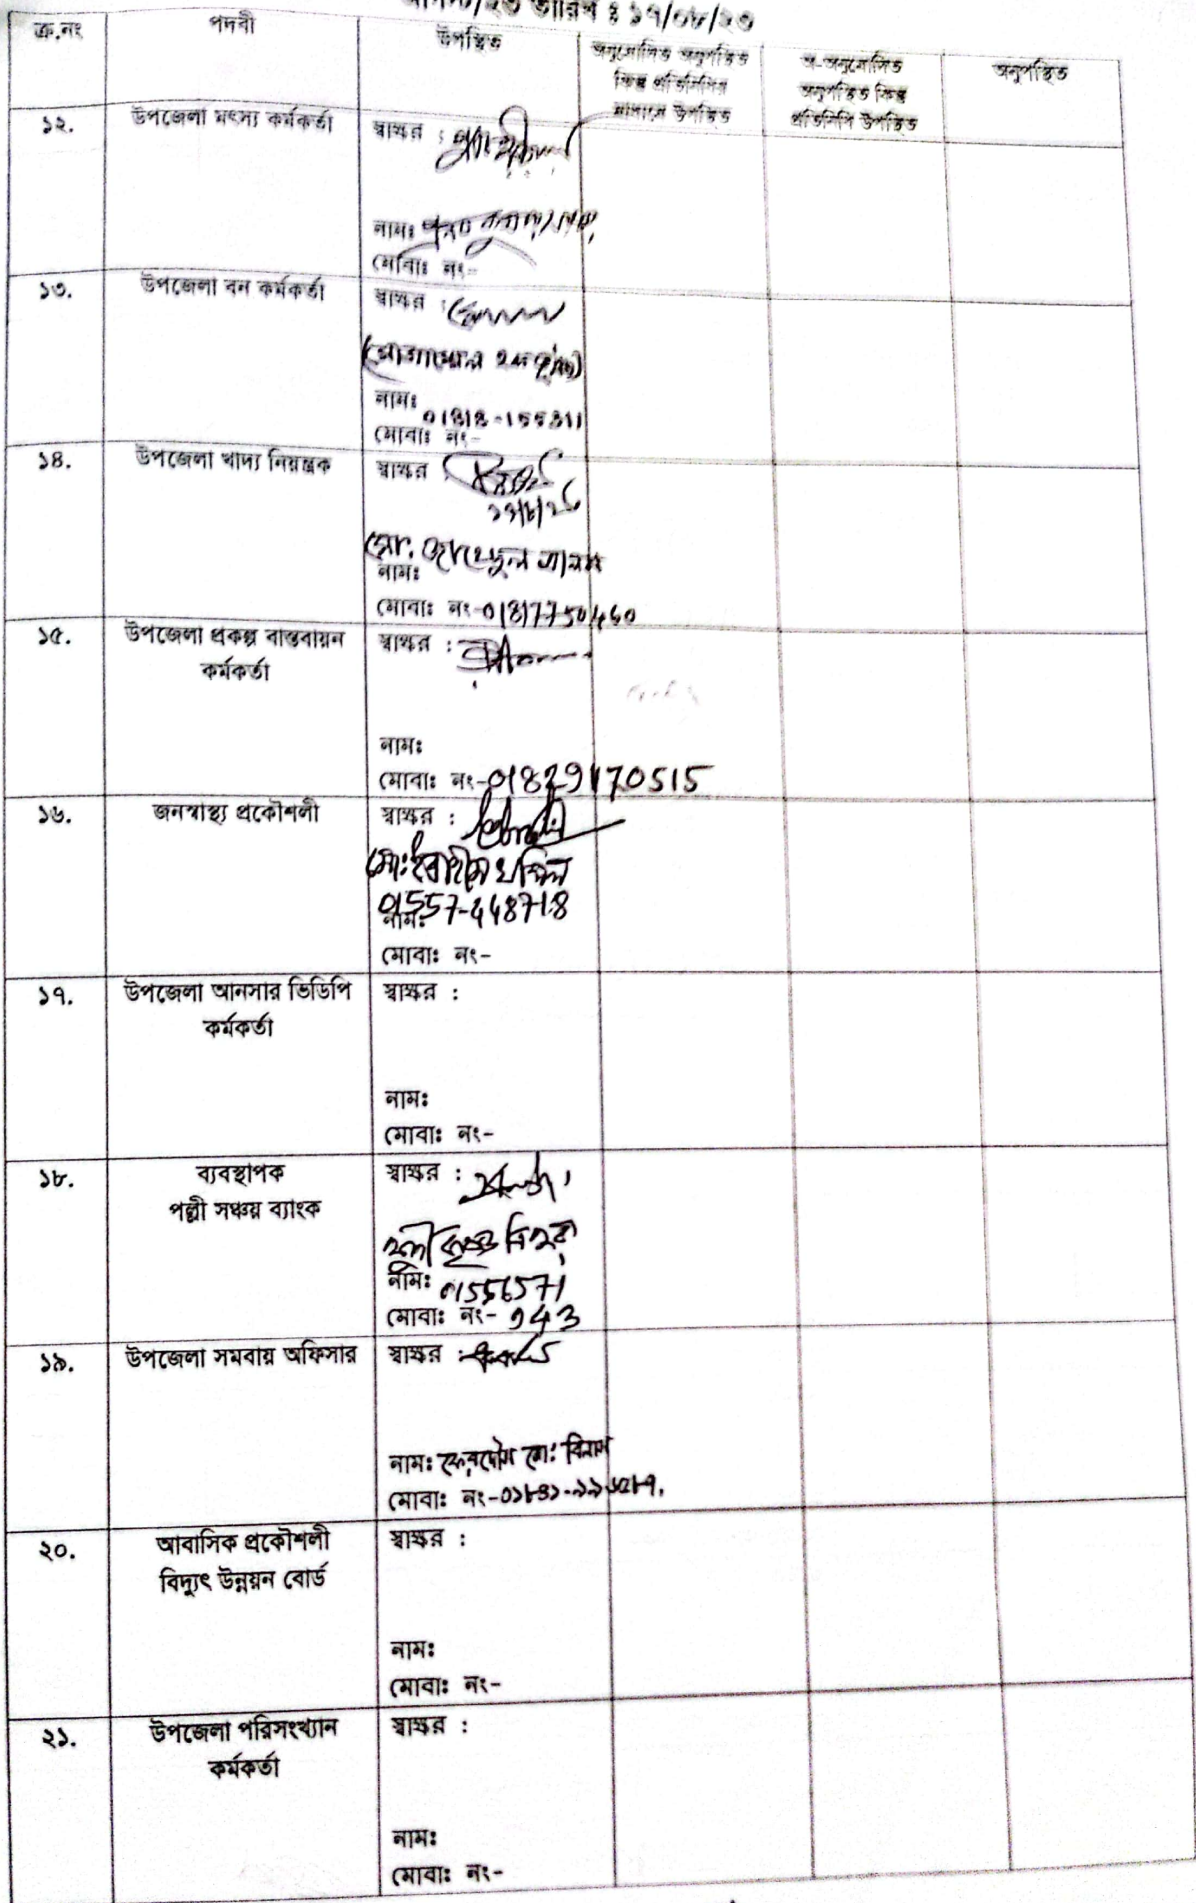 তারিখ ঃ ১৭/০৮/২৩
ক্র.নং পদবী উপস্থিত অনুমোদিত অনুপস্থিত কিন্তু প্রতিনিধির মাধ্যমে উপস্থিত অ-অনুমোদিত অনুপস্থিত কিন্তু প্রতিনিধি উপস্থিত অনুপস্থিত
১২. উপজেলা মৎস্য কর্মকর্তা স্বাক্ষর :
নামঃ
মোবাঃ নং-
১৩. উপজেলা বন কর্মকর্তা স্বাক্ষর :
নামঃ
01818-155311
মোবাঃ নং-
১৪. উপজেলা খাদ্য নিয়ন্ত্রক স্বাক্ষর
মো.
নামঃ
মোবাঃ নং-01817750460
১৫. উপজেলা প্রকল্প বাস্তবায়ন স্বাক্ষর :
কর্মকর্তা
নামঃ
মোবাঃ নং-01829170515
১৬. জনস্বাস্থ্য প্রকৌশলী স্বাক্ষর :
মো: ইব্রাহীম খলিল
01557-448718
নামঃ
মোবাঃ নং-
১৭. উপজেলা আনসার ভিডিপি স্বাক্ষর :
কর্মকর্তা
নামঃ
মোবাঃ নং-
১৮. ব্যবস্থাপক স্বাক্ষর :
পল্লী সঞ্চয় ব্যাংক
ত্রিপুরা
নামঃ 01556571
মোবাঃ নং- 943
১৯. উপজেলা সমবায় অফিসার স্বাক্ষর :
নামঃ
মোবাঃ নং-
২০. আবাসিক প্রকৌশলী স্বাক্ষর :
বিদ্যুৎ উন্নয়ন বোর্ড
নামঃ
মোবাঃ নং-
২১. উপজেলা পরিসংখ্যান স্বাক্ষর :
কর্মকর্তা
নামঃ
মোবাঃ নং-